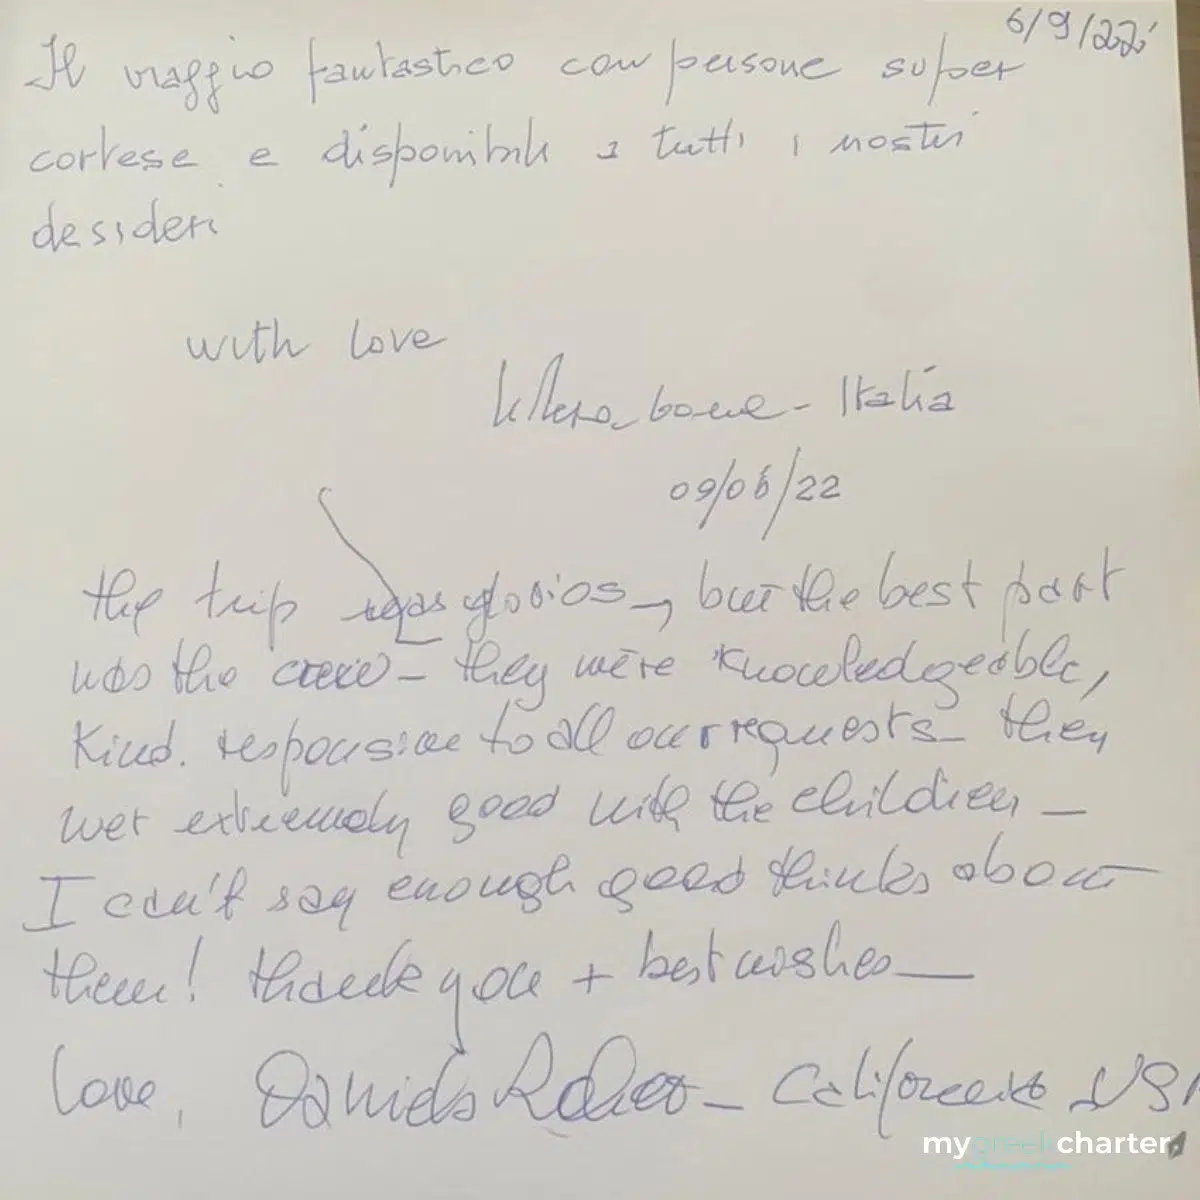 6/9/202
Il viaggio fantastico con persone super
cortese e disponibili a tutti i nostri
desideri
with love
- Italia
09/06/22
the trip was glorios, but the best part
was the crew - they were knowledgeable,
kind. responsive to all our requests - they
wer extremely good with the children -
I can't say enough good thinks about
them! thank you + best wishes -
love, Daniela - California USA
mygreekcharter